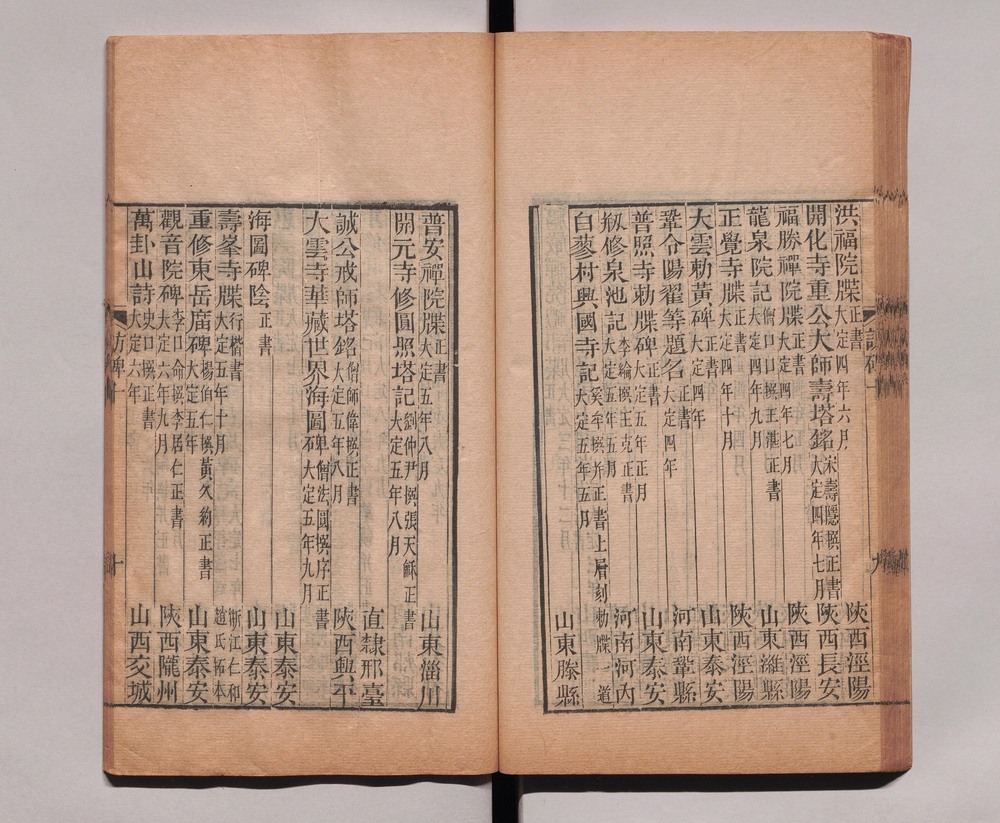 洪福院牒正書大定四年六月 陝西涇陽
開化寺重公大師壽塔銘宋壽隱撰正書大定四年七月 陝西長安
福勝禪院牒正書大定四年七月 陝西涇陽
龍泉院記撰王正書大定四年九月 山東濰縣
正覺寺牒正書大定四年十月 陝西涇陽
大雲寺勅黃碑正書大定四年 山東泰安
鞏令陽翟等題名正書大定四年 河南鞏縣
普照寺勅牒碑正書大定五年正月 山東泰安
修泉池記李綸撰王克正書大定五年五月 河南河內
白蓼村興國寺記奚牟撰并正書上層刻勅牒一道大定五年五月 山東滕縣
普安禪院牒正書大定五年八月 山東淄川
開元寺修圓照塔記劉仲尹撰張天龢正書大定五年八月 直隸邢臺
誠公戒師塔銘僧師偉撰正書大定五年八月 陝西興平
大雲寺華藏世界海圖碑僧法圓撰序正書大定五年九月 山東泰安
海圖碑陰正書 山東泰安
壽峯寺牒行楷書大定五年十月 浙江仁和趙氏拓本
重修東岳廟碑楊伯仁撰黃久約正書大定五年 山東泰安
觀音院碑李口命撰李居仁正書大定六年九月 陝西隴州
萬卦山詩史口撰正書大定六年 山西交城